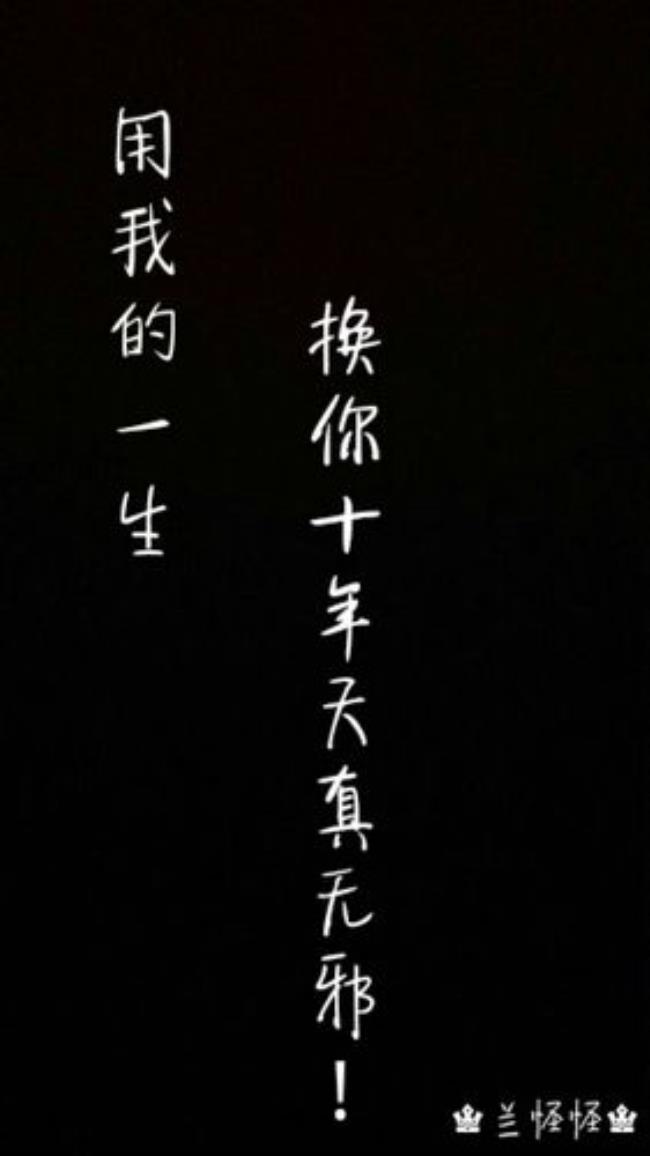 用我的一生
换你十年天真无邪！
兰怪怪